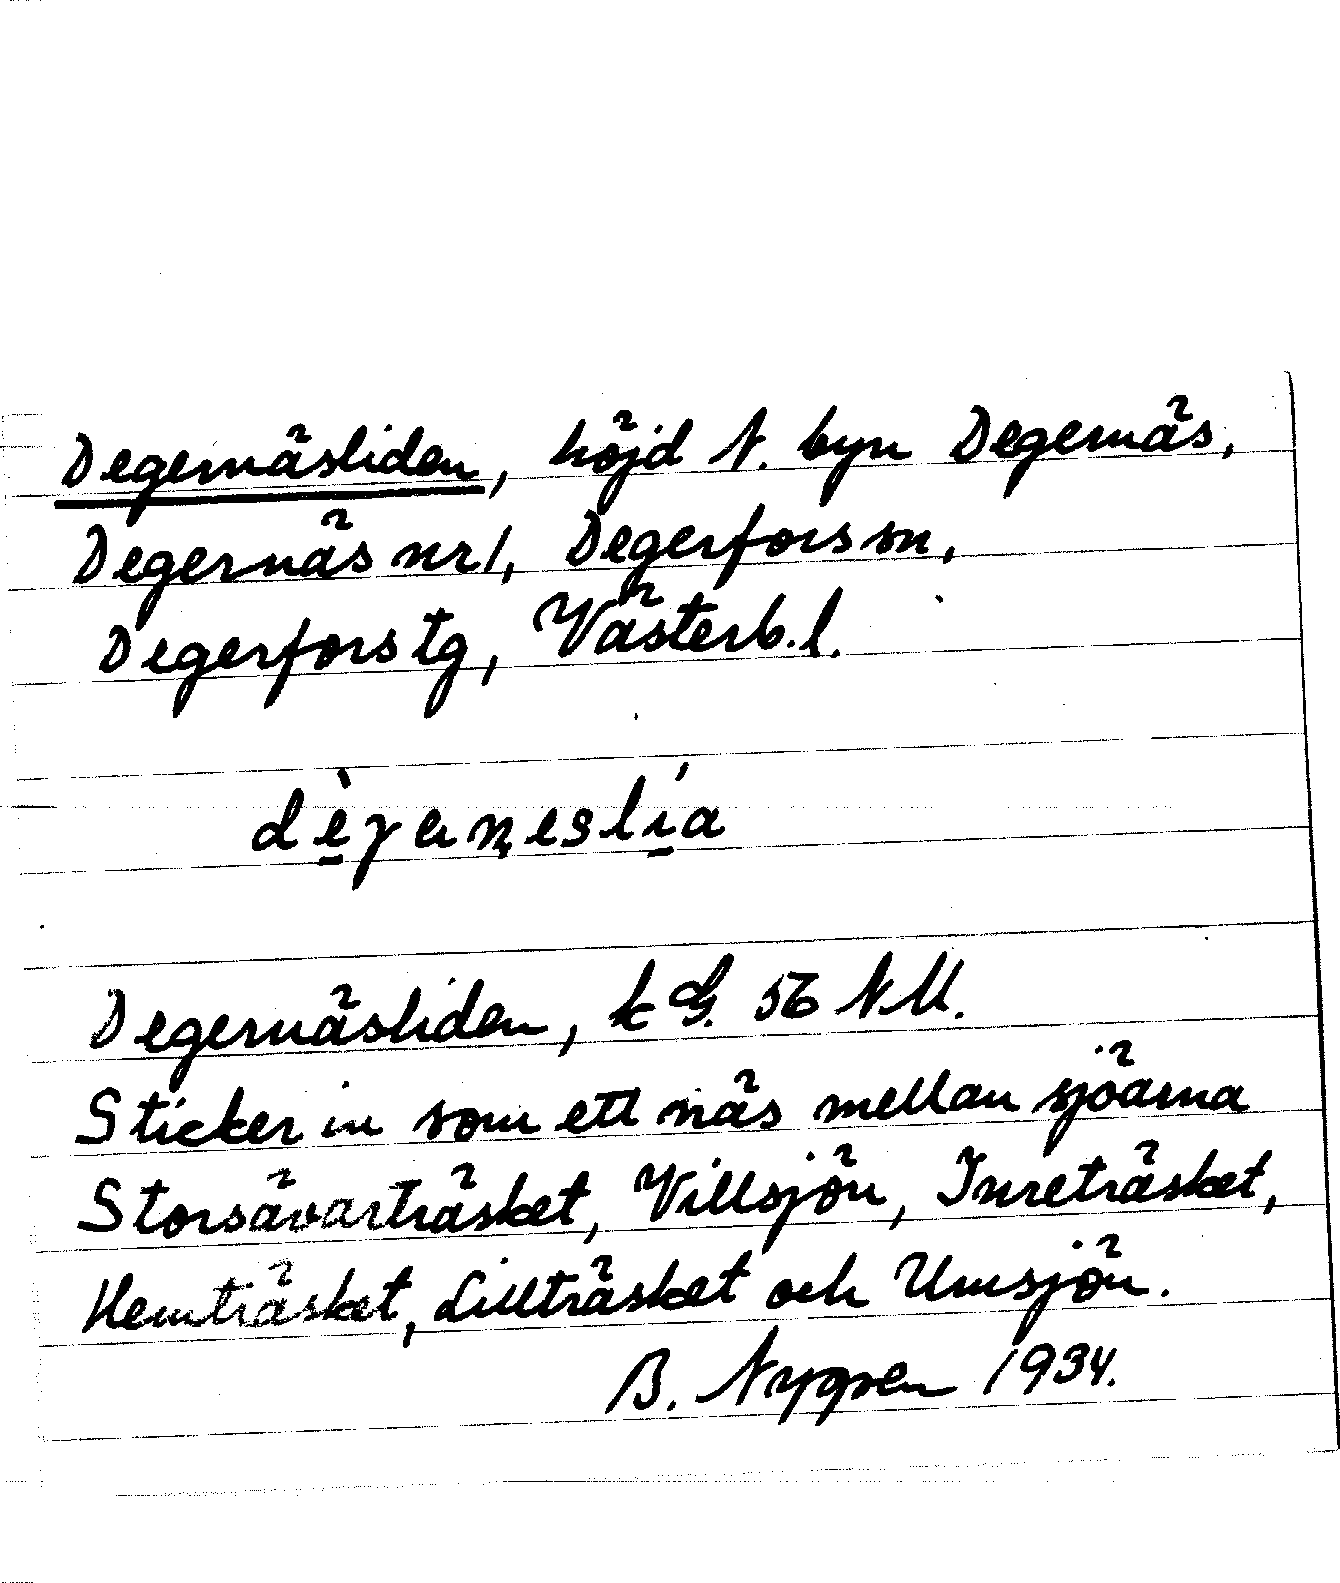 Degernäsliden, höjd N. byn Degernäs,
Degernäs nr 1, Degerfors sn,
Degerfors tg, Västerb. l.
Degernäsliden, k G. 56 NU.
Sticker in som ett näs mellan sjöarna
Storsävarträsket, Villsjön, Inreträsket,
Hemträsket, Lillträsket och Umsjön.
B. Nygren 1934.